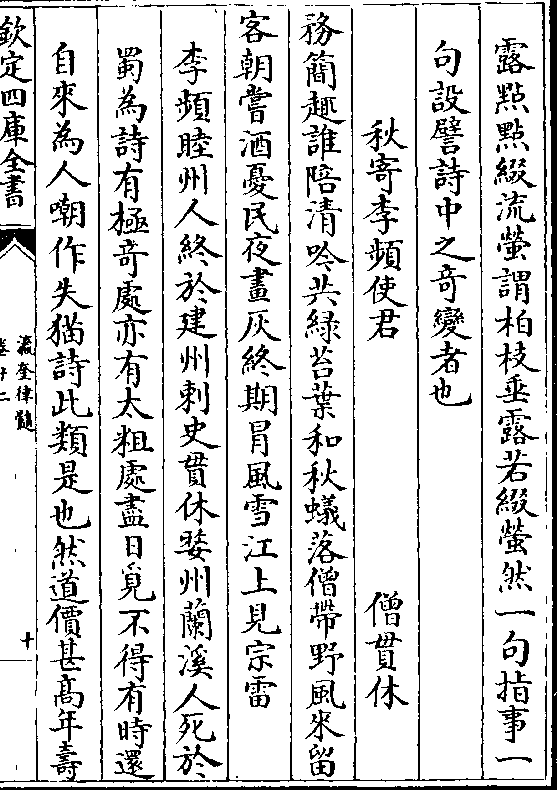 露點點綴流螢謂柏枝垂露若綴螢然一句指事一
句設譬詩中之奇變者也
秋寄李頻使君 僧貫休
務簡趣誰陪清吟共綠苔葉和秋蟻落僧帶野風來留
客朝嘗酒憂民夜畫灰終期冐風雪江上見宗雷
李頻睦州人終於建州刺史貫休婺州蘭溪人死於
蜀為詩有極奇處亦有太粗處盡日覓不得有時還
自來為人嘲作失猫詩此類是也然道價甚髙年壽
欽定四庫全書
瀛奎律髓
卷十二
十